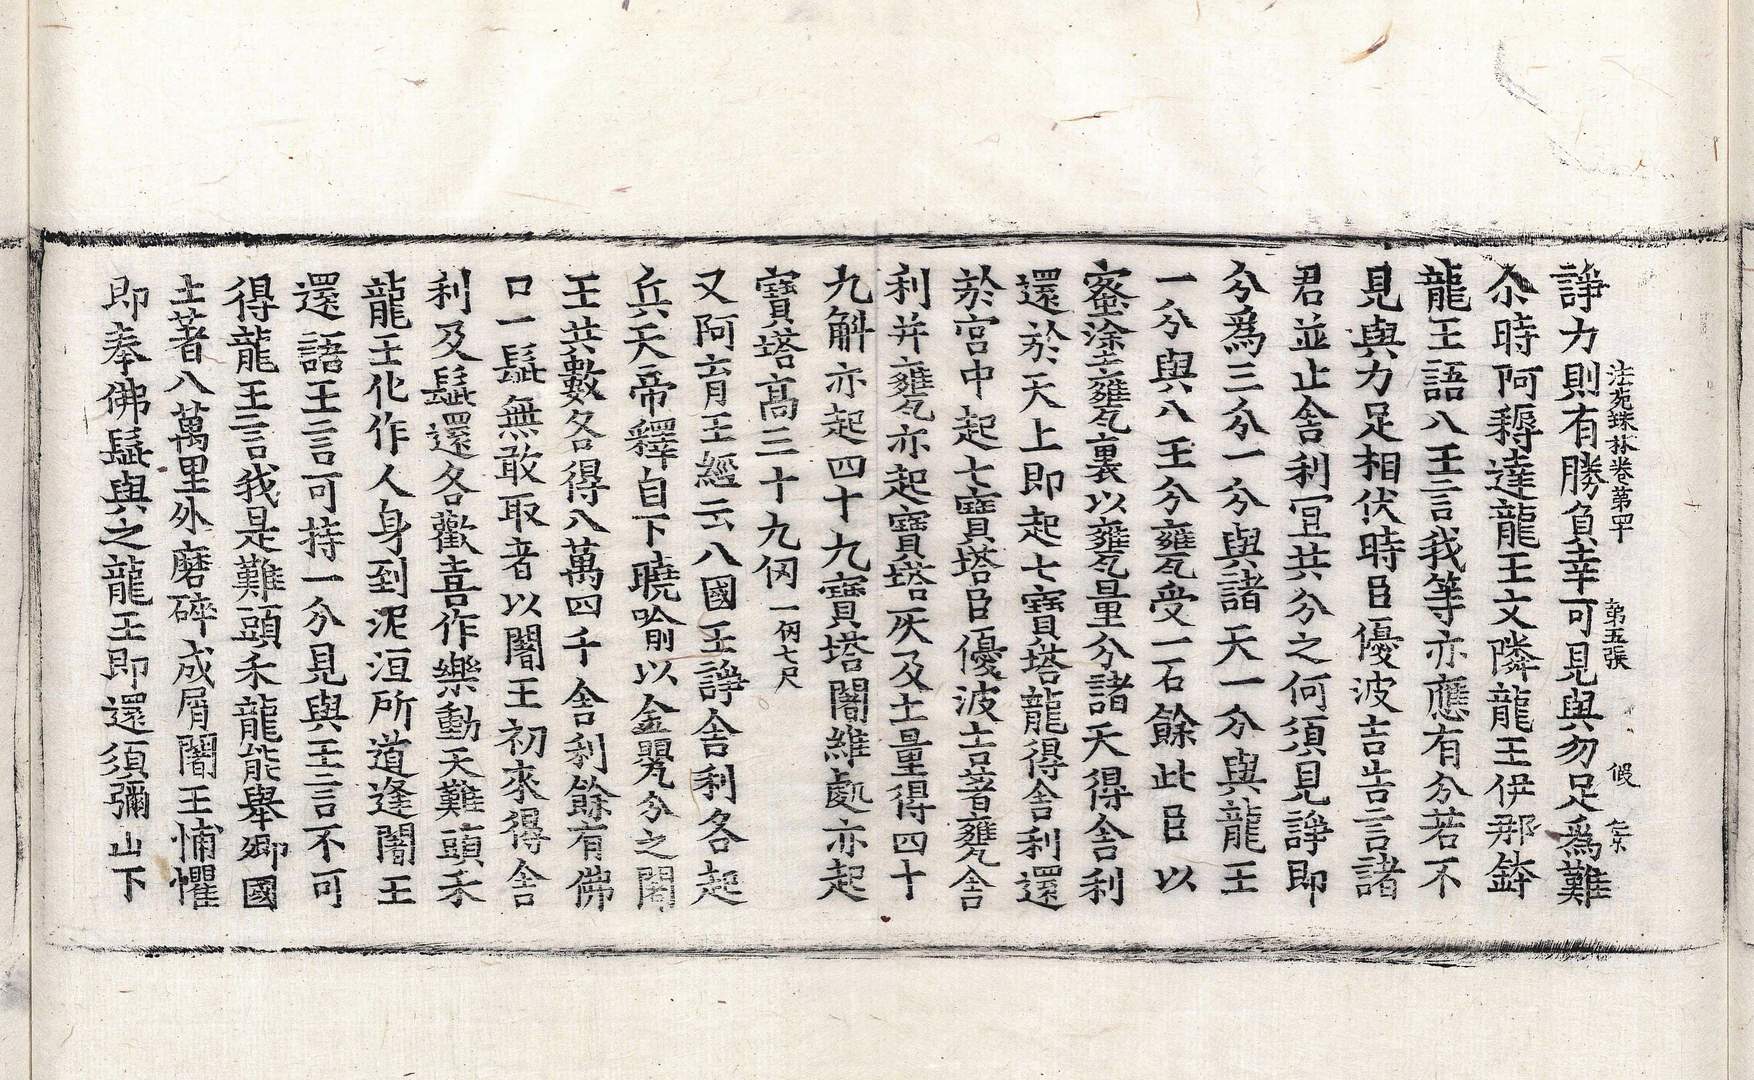 法苑珠林卷第四十　第五張　假
諍力則有勝負幸可見與勿足爲難
尒時阿耨達龍王文隣龍王伊那鉢
龍王語八王言我等亦應有分若不
見與力足相伏時臣優波吉告言諸
君並止舍利宜共分之何須見諍即
分爲三分一分與諸天一分與龍王
一分與八王分甕受一石餘此臣以
蜜塗甕裏以甕量分諸天得舍利
還於天上即起七寶塔龍得舍利還
於宮中起七寶塔臣優波吉著甕舍
利并甕亦起寶塔灰及土量得四十
九斛亦起四十九寶塔闍維處亦起
寶塔高三十九仞一仞七尺
又阿育王經云八國王諍舍利各起
兵天帝釋自下曉喻以金甖分之闍
王共數各得八萬四千舍利餘有佛
口一髭無敢取者以闍王初來得舍
利及髭還各歡喜作樂動天難頭禾
龍王化作人身到泥洹所道逢闍王
還語王言可持一分見與王言不可
得龍王言我是難頭禾龍能舉卿國
土著八萬里外磨碎成屑闍王怖懼
即奉佛髭與之龍王即還須彌山下